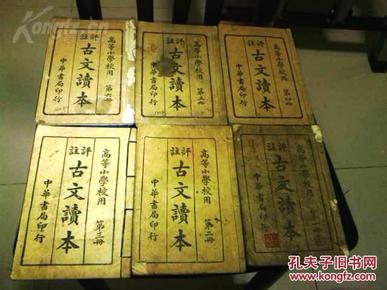 Kongfz.cn
高等小學校用 第六冊
評註
古文讀本
中華書局印行
高等小學校用 第五冊
評註
古文讀本
中華書局印行
高等小學校用 第四冊
評註
古文讀本
中華書局印行
高等小學校用 第三冊
評註
古文讀本
中華書局印行
高等小學校用 第二冊
評註
古文讀本
中華書局印行
高等小學校用
評註
古文讀本
中華書局印行
孔夫子旧书网